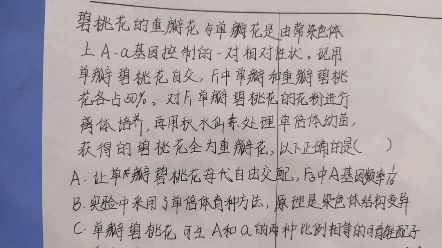 碧桃花的重瓣花与单瓣花是由常染色体
上A-a基因控制的一对相对性状。现用
单瓣碧桃花自交,F₁中单瓣和重瓣碧桃
花各占50%。对F₁单瓣碧桃花的花粉进行
离体培养,再用秋水仙素处理单倍体幼苗,
获得的碧桃花全为重瓣花,以下正确的是( )
A. 让单瓣碧桃花每代自由交配,F₅中A基因频率1/
B. 实验中采用了单倍体育种方法,原理是染色体结构变异
C. 单瓣碧桃花可产生A和a的两种比例相等的可育雄配子